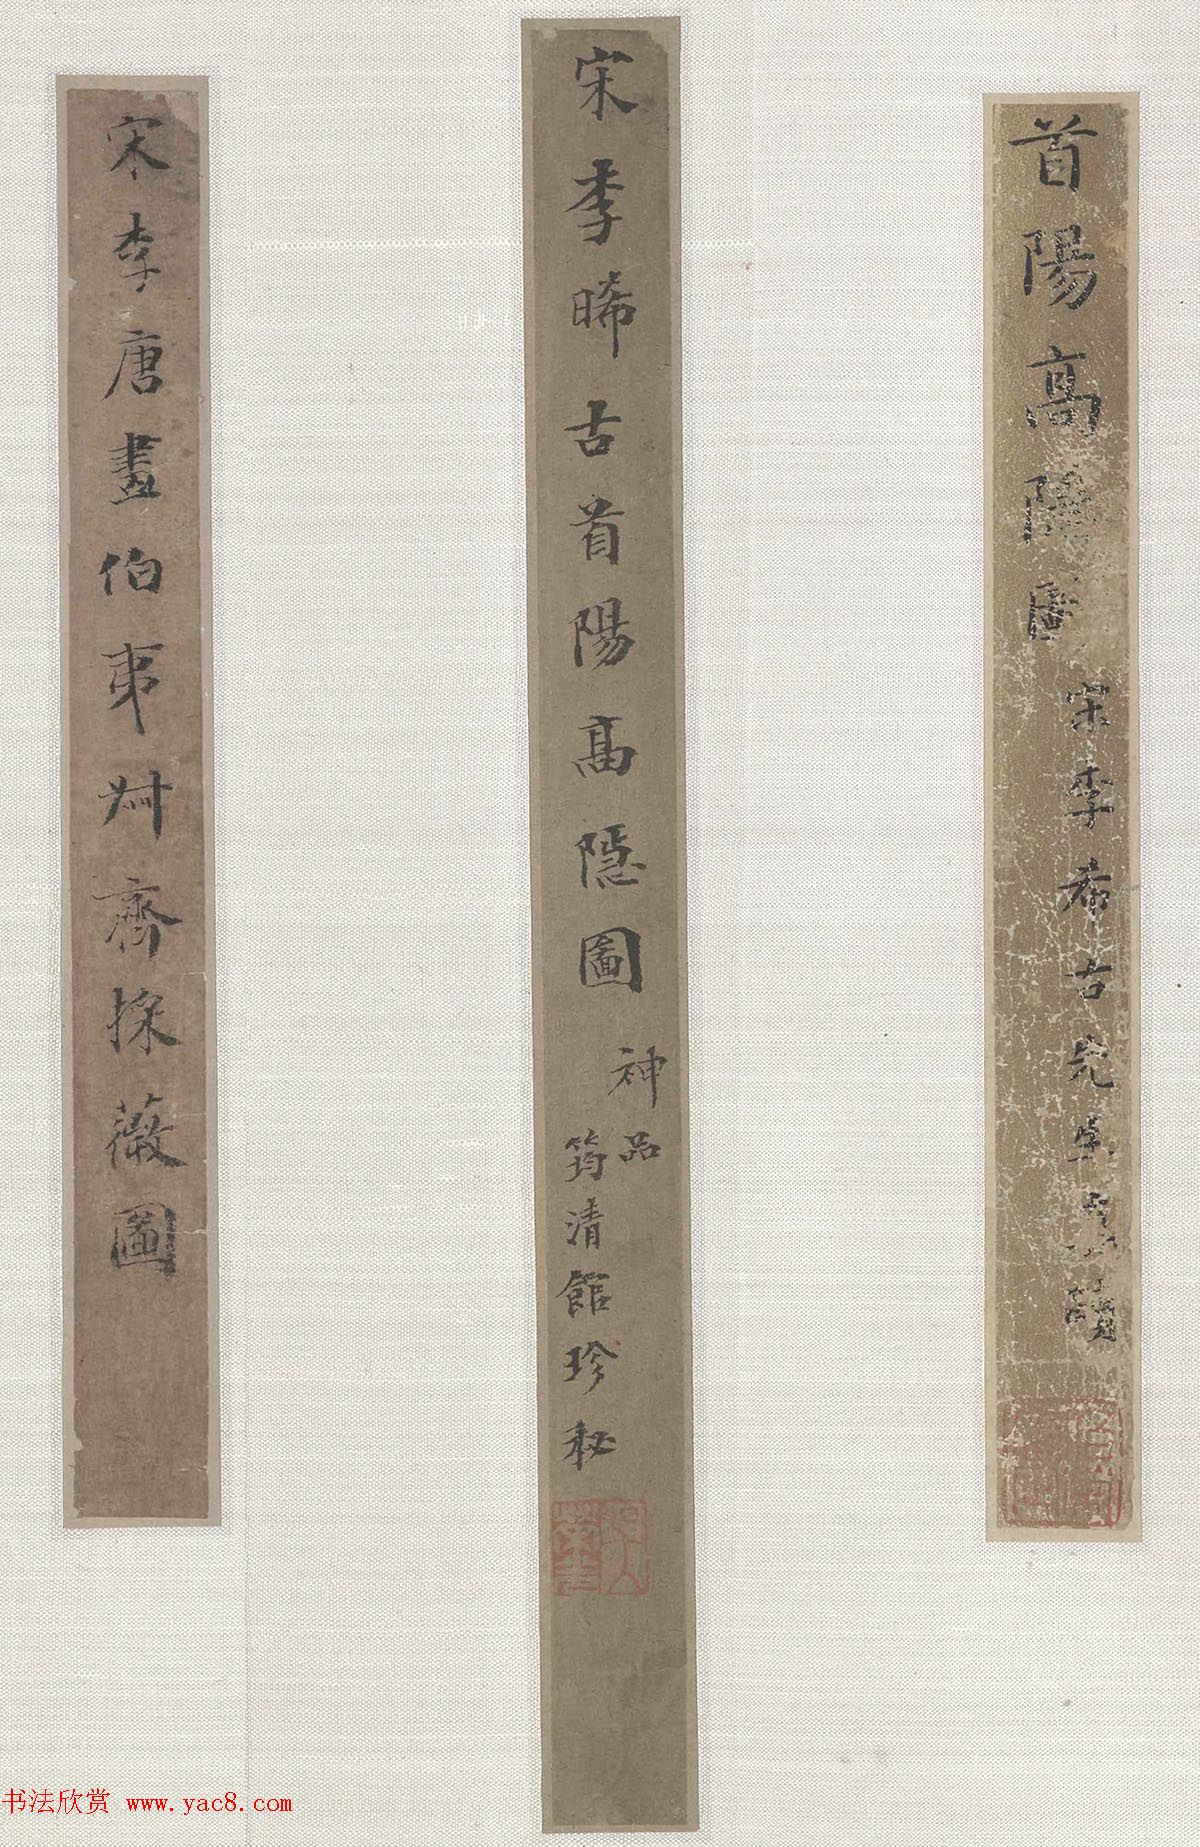 首陽高隱圖
宋李希古先生真蹟
宋李晞古首陽高隱圖
神品
筠清館珍秘
宋李唐畫伯夷叔齊採薇圖
书法欣赏 www.yac8.com